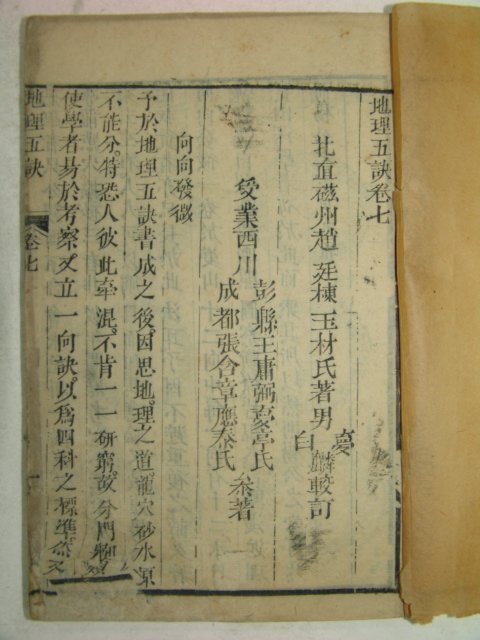 地理五訣卷七
北直磁州趙 廷棟玉材氏著男 夢
白 麟較訂
受業西川 彭縣王庸弼豪亭氏
成都張含章應泰氏 叅著
向向發微
予於地理五訣書成之後因思地理之道龍穴砂水原
不能分特恐人彼此牽混不肯一一研窮故分門
使學者易於考察又立一向訣以爲四科之標準
地理五訣 卷七